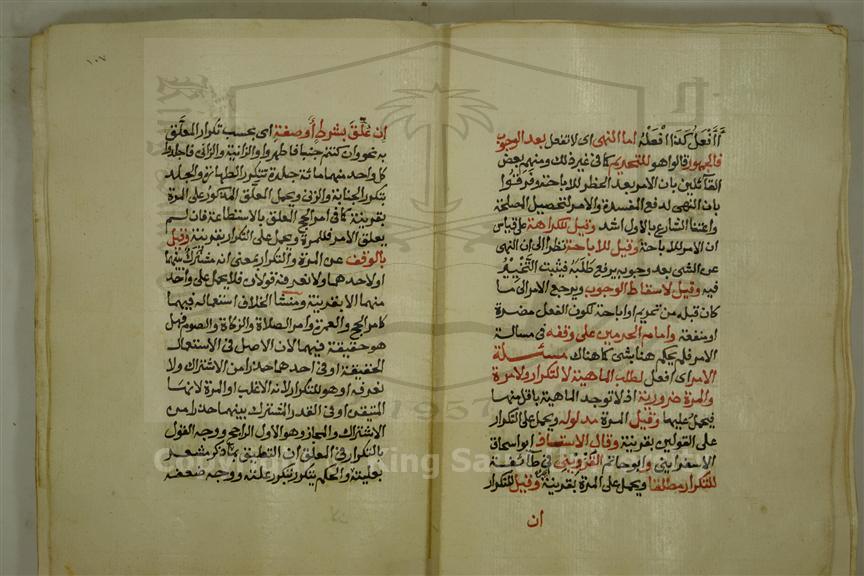 أأفعل كذا افعله اما النهى اى لا تفعل بعد الوجوب
فالجمهور قالوا هو للتحريم كما فى غير ذلك ومنهم بعض
القائلين بان الامر بعد الحظر للاباحة وفرقوا
بان النهى لدفع المفسدة والامر لتحصيل المصلحة
واعتنا الشارع بالاول اشد وقيل للكراهة على قياس
ان الامر للاباحة وقيل للاباحة نظرا الى ان النهى
عن الشى بعد وجوبه يرفع طلبه فيثبت التخيير
فيه وقيل لاسقاط الوجوب ويرجع الامر الى ما
كان قبله من تحريم او اباحة لكون الفعل مضرة
او منفعة وامام الحرمين على وقفه فى مسالة
الامر فلم يحكم هنا بشى كما هناك مسئلة
الامر اى افعل لطلب الماهية لا لتكرار ولا مرة
والمرة ضرورية اذ لا توجد الماهية باقل منها
فيحمل عليها وقيل المرة مدلوله ويحمل على التكرار
على القولين بقرينة وقال الاستاذ ابو اسحاق
الاسفراينى وابو حاتم القزوينى فى طائفة
للتكرار مطلقا ويحمل على المرة بقرينة وقيل للتكرار
ان
١٠٧
ان علق بشرط أو صفة اى بحسب تكرار المعلق
به نحو وان كنتم جنبا فاطهروا والزانية والزانى فاجلدوا
كل واحد منهما مائة جلدة تتكرر الطهارة والجلد
بتكرر الجنابة والزنى ويحمل المعلق المذكور على المرة
بقرينة كما فى امر الحج المعلق بالاستطاعة فان لم
يعلق الامر فللمرة ويحمل على التكرار بقرينة وقيل
بالوقف عن المرة والتكرار بمعنى انه مشترك بينهما
او لاحدهما ولا نعرفه قولان فلا يحمل على واحد
منهما الا بقرينة ومنشا الخلاف استعماله فيهما
كامر الحج والعمرة وامر الصلاة والزكاة والصوم فهل
هو حقيقة فيهما لان الاصل فى الاستعمال
الحقيقة او فى احدهما حذرا من الاشتراك ولا
نعرفه او هو للتكرار لانه الاغلب او المرة لانها
المتيقن او فى القدر المشترك بينهما حذرا من
الاشتراك والمجاز وهو الاول الراجح ووجه القول
بالتكرار فى المعلق ان التعليق بما ذكر مشعر
بعليته والحكم يتكرر بتكرر علته ووجه ضعفه
1957
King Sa